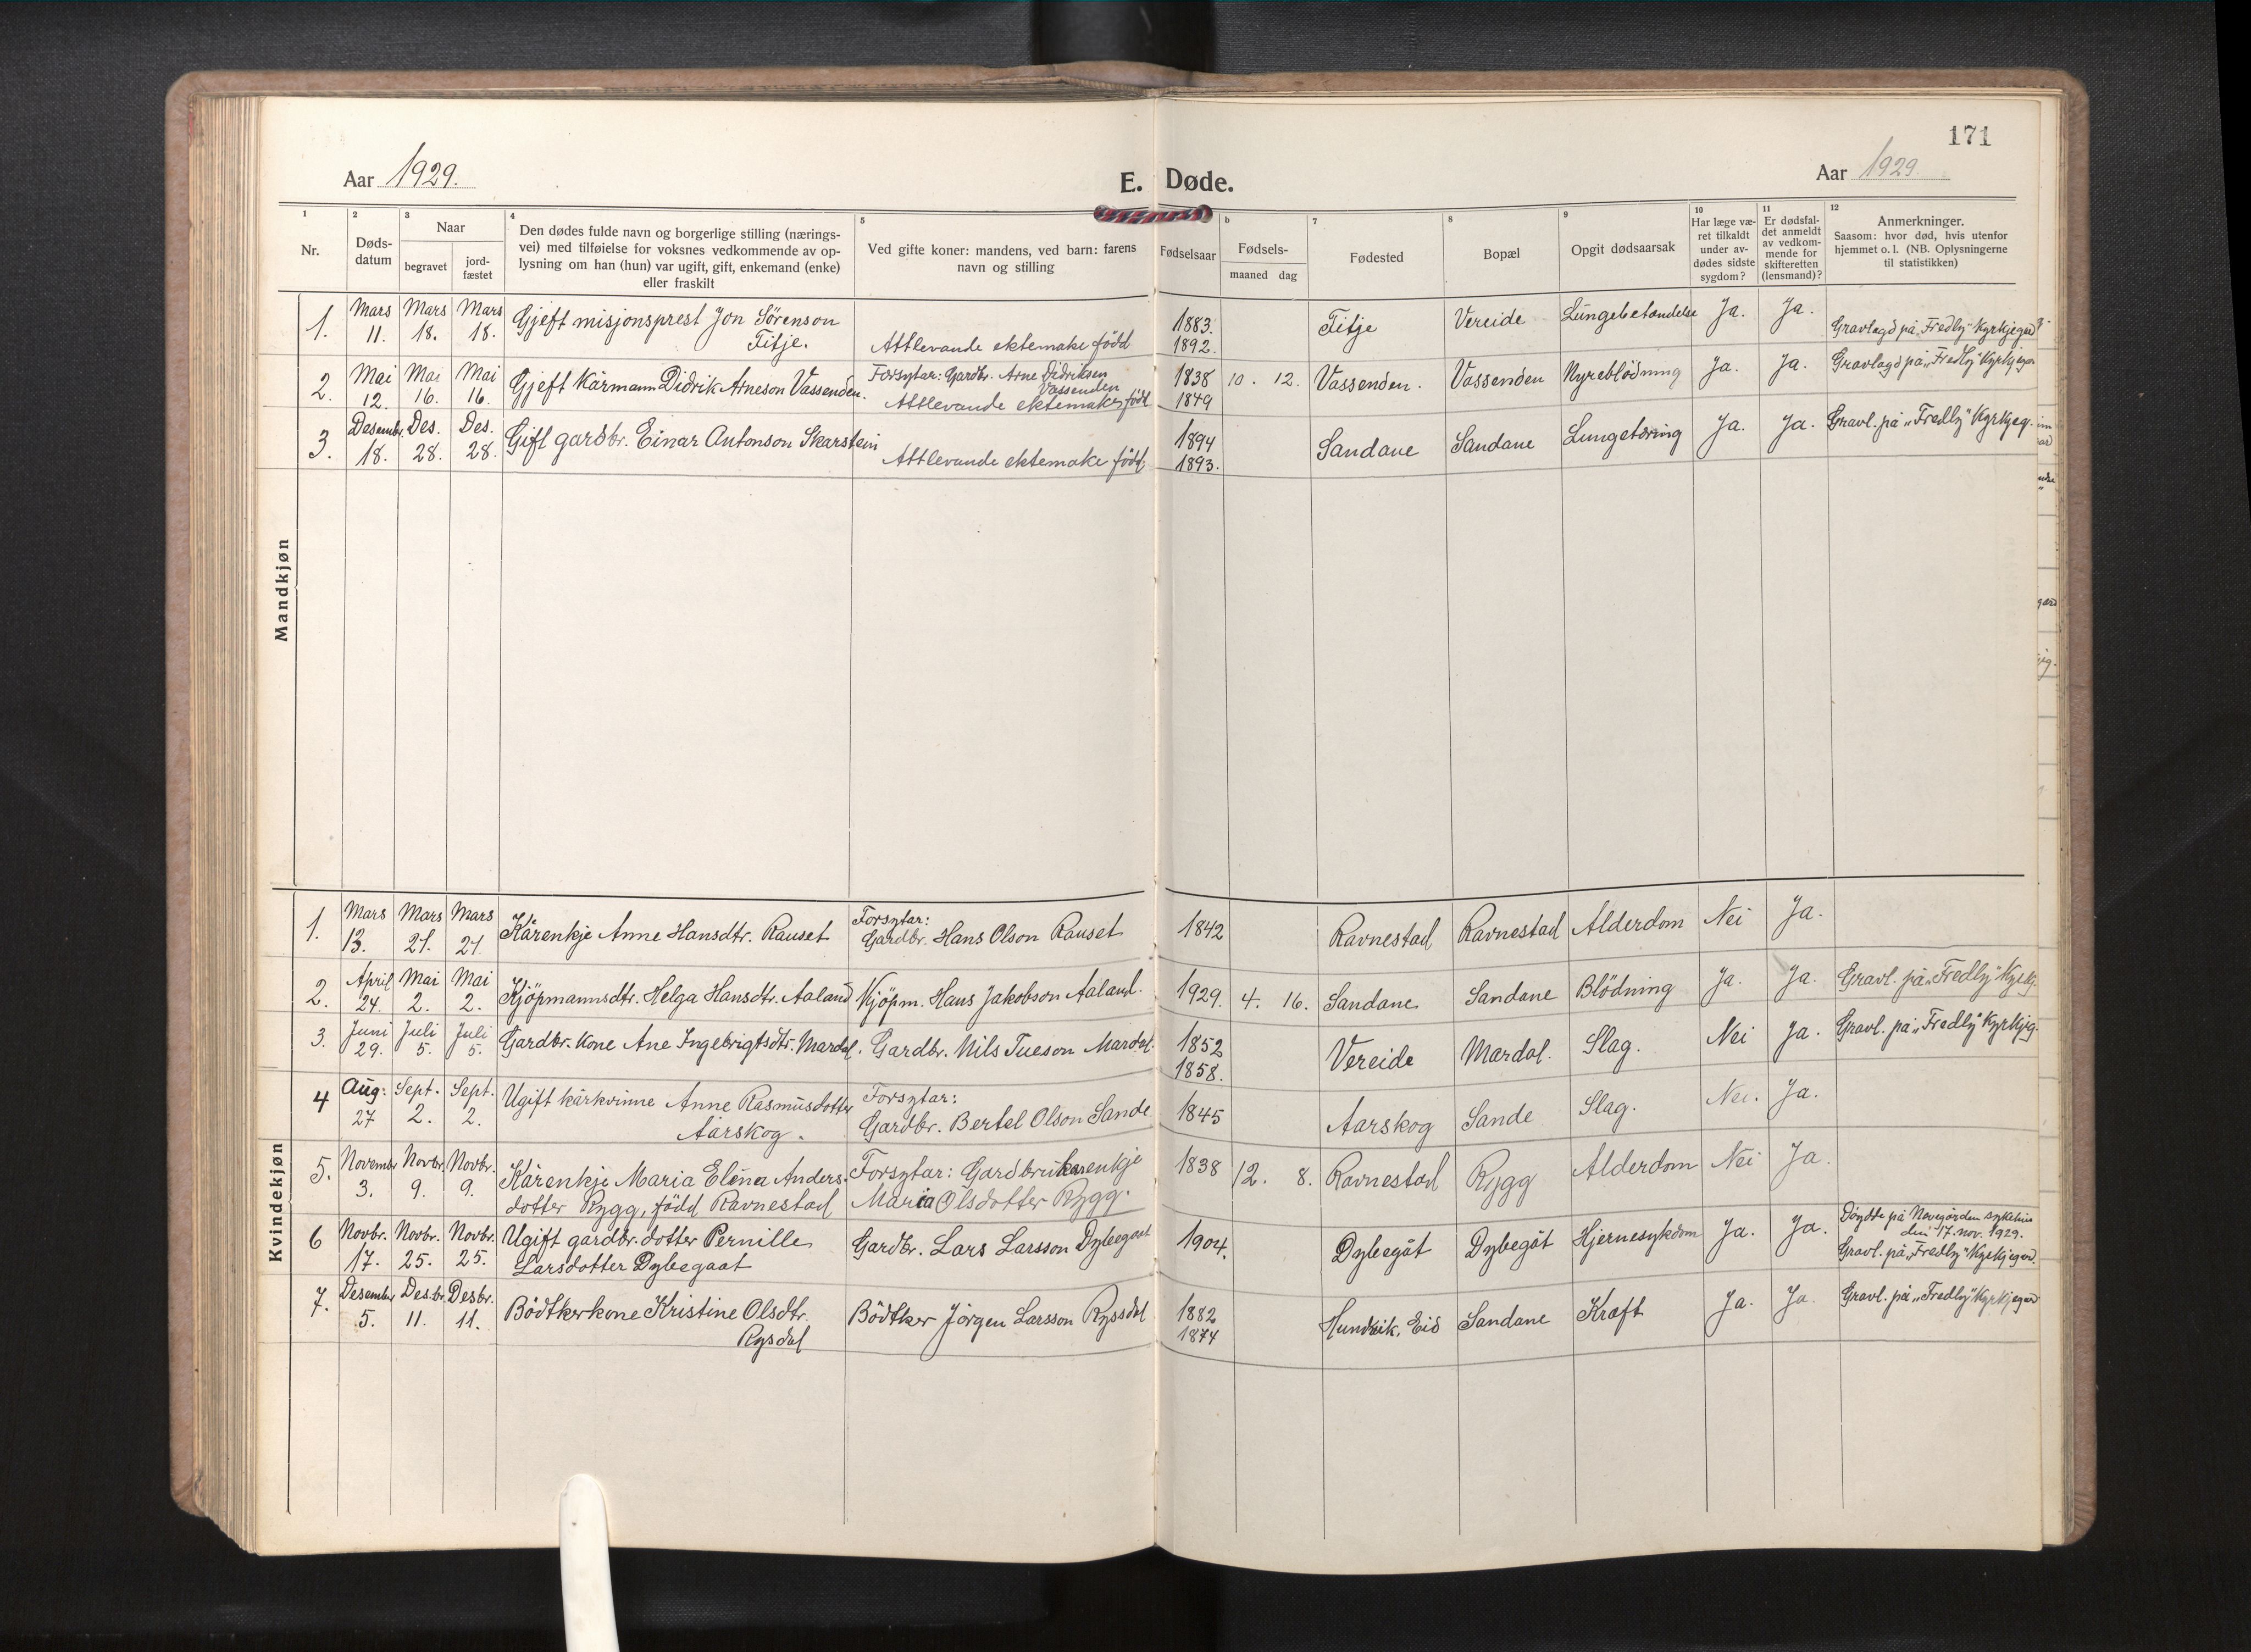 171
Aar 1929.
E. Døde.
Aar 1929
1 Nr.
2 Døds-datum
3 Naar
begravet
jord-fæstet
4 Den dødes fulde navn og borgerlige stilling (nærings-
vei) med tilføielse for voksnes vedkommende av op-
lysning om han (hun) var ugift, gift, enkemand (enke)
eller fraskilt
5 Ved gifte koner: mandens, ved barn: farens
navn og stilling
Fødselsaar
b Fødsels-
maaned dag
7 Fødested
8 Bopæl
9 Opgit dødsaarsak
10 Har læge væ-
ret tilkaldt
under av-
dødes sidste
sygdom?
11 Er dødsfal-
det anmeldt
av vedkom-
mende for
skifteretten
(lensmand)?
12 Anmerkninger.
Saasom: hvor død, hvis utenfor
hjemmet o. l. (NB. Oplysningerne
til statistikken)
Mandkjøn
1. Mars 11. Mars 18. Mars 18. Gjeft misjonsprest Jon Sörenson
Fitje. Attlevande ektemake född 1883. 1892. Fitje Vereide Lungebetændelse Ja. Ja. Gravlagd på „Fredly" Kyrkjegard
2. Mai 12. Mai 16. Mai 16. Gjeft Kårmann Didrik Arneson Vassenden. Forsytar: Gardbr. Arne Didriksen
Vassenden
Attlevande ektemake född 1838 1849 10. 12. Vassenden. Vassenden Nyreblödning Ja. Ja. Gravlagd på „Fredly" Kyrkjegar
3. Desembr. 18. Des. 28. Des. 28. Gift gardbr. Einar Antonson Skarstein
Attlevande ektemake född: 1894 1893. Sandane Sandane Lungetæring Ja. Ja. Gravl. på „Fredly" Kyrkjeg.
Kvindekjøn
1. Mars 13. Mars 21. Mars 21 Kårenkje Anne Hansdtr. Rauset Forsytar:
Gardbr. Hans Olson Rauset 1842 Ravnestad Ravnestad Alderdom Nei Ja.
2. April 24. Mai 2. Mai 2. Kjöpmannsdtr. Helga Hansdtr. Aaland Kjöpm. Hans Jakobson Aaland. 1929. 4. 16. Sandane Sandane Blödning Ja. Ja. Gravl. på „Fredly" Kyrkj.
3. Juni 29. Juli 5. Juli 5. Gardbr. Kone Ane Ingebrigtsdtr. Mardal. Gardbr. Nils Tueson Mardal. 1852 1858. Vereide Mardal. Slag. Nei Ja. Gravl. på „Fredly" Kyrkjeg.
4 Aug: 27 Sept. 2. Sept. 2. Ugift kårkvinne Anne Rasmusdotter
Aarskog. Forsytar:
Gardbr. Bertel Olson Sande 1845 Aarskog Sande Slag. Nei. Ja.
5. Novembr 3. Novbr. 9. Novbr. 9. Kårenkje Maria Elina Anders-
dotter Rygg, född Ravnestad Forsytar: Gardbrukarenkje
Maria Olsdotter Rygg. 1838 12. 8. Ravnestad Rygg Alderdom Nei Ja.
6 Novbr. 17. Novbr. 25. Novbr. 25. Ugift gardbr. dotter Pernille
Larsdotter Dybegaat Gardbr. Lars Larsson Dybegaat 1904. Dybegåt Dybegåt Hjernesykdom Ja. Ja. Döydde på Nevegården sykehus
den 17. nov. 1929.
Gravl. på „Fredly" Kyrkjegard.
7. Desember 5. Desbr. 11. Desbr. 11. Bödtkerkone Kristine Olsdtr.
Rysdal Bödtker Jörgen Larsson Ryssdal 1882 1874 Hundeik, Eid Sandane Kræft Ja. Ja Gravl. på „Fredly" Kyrkjegar